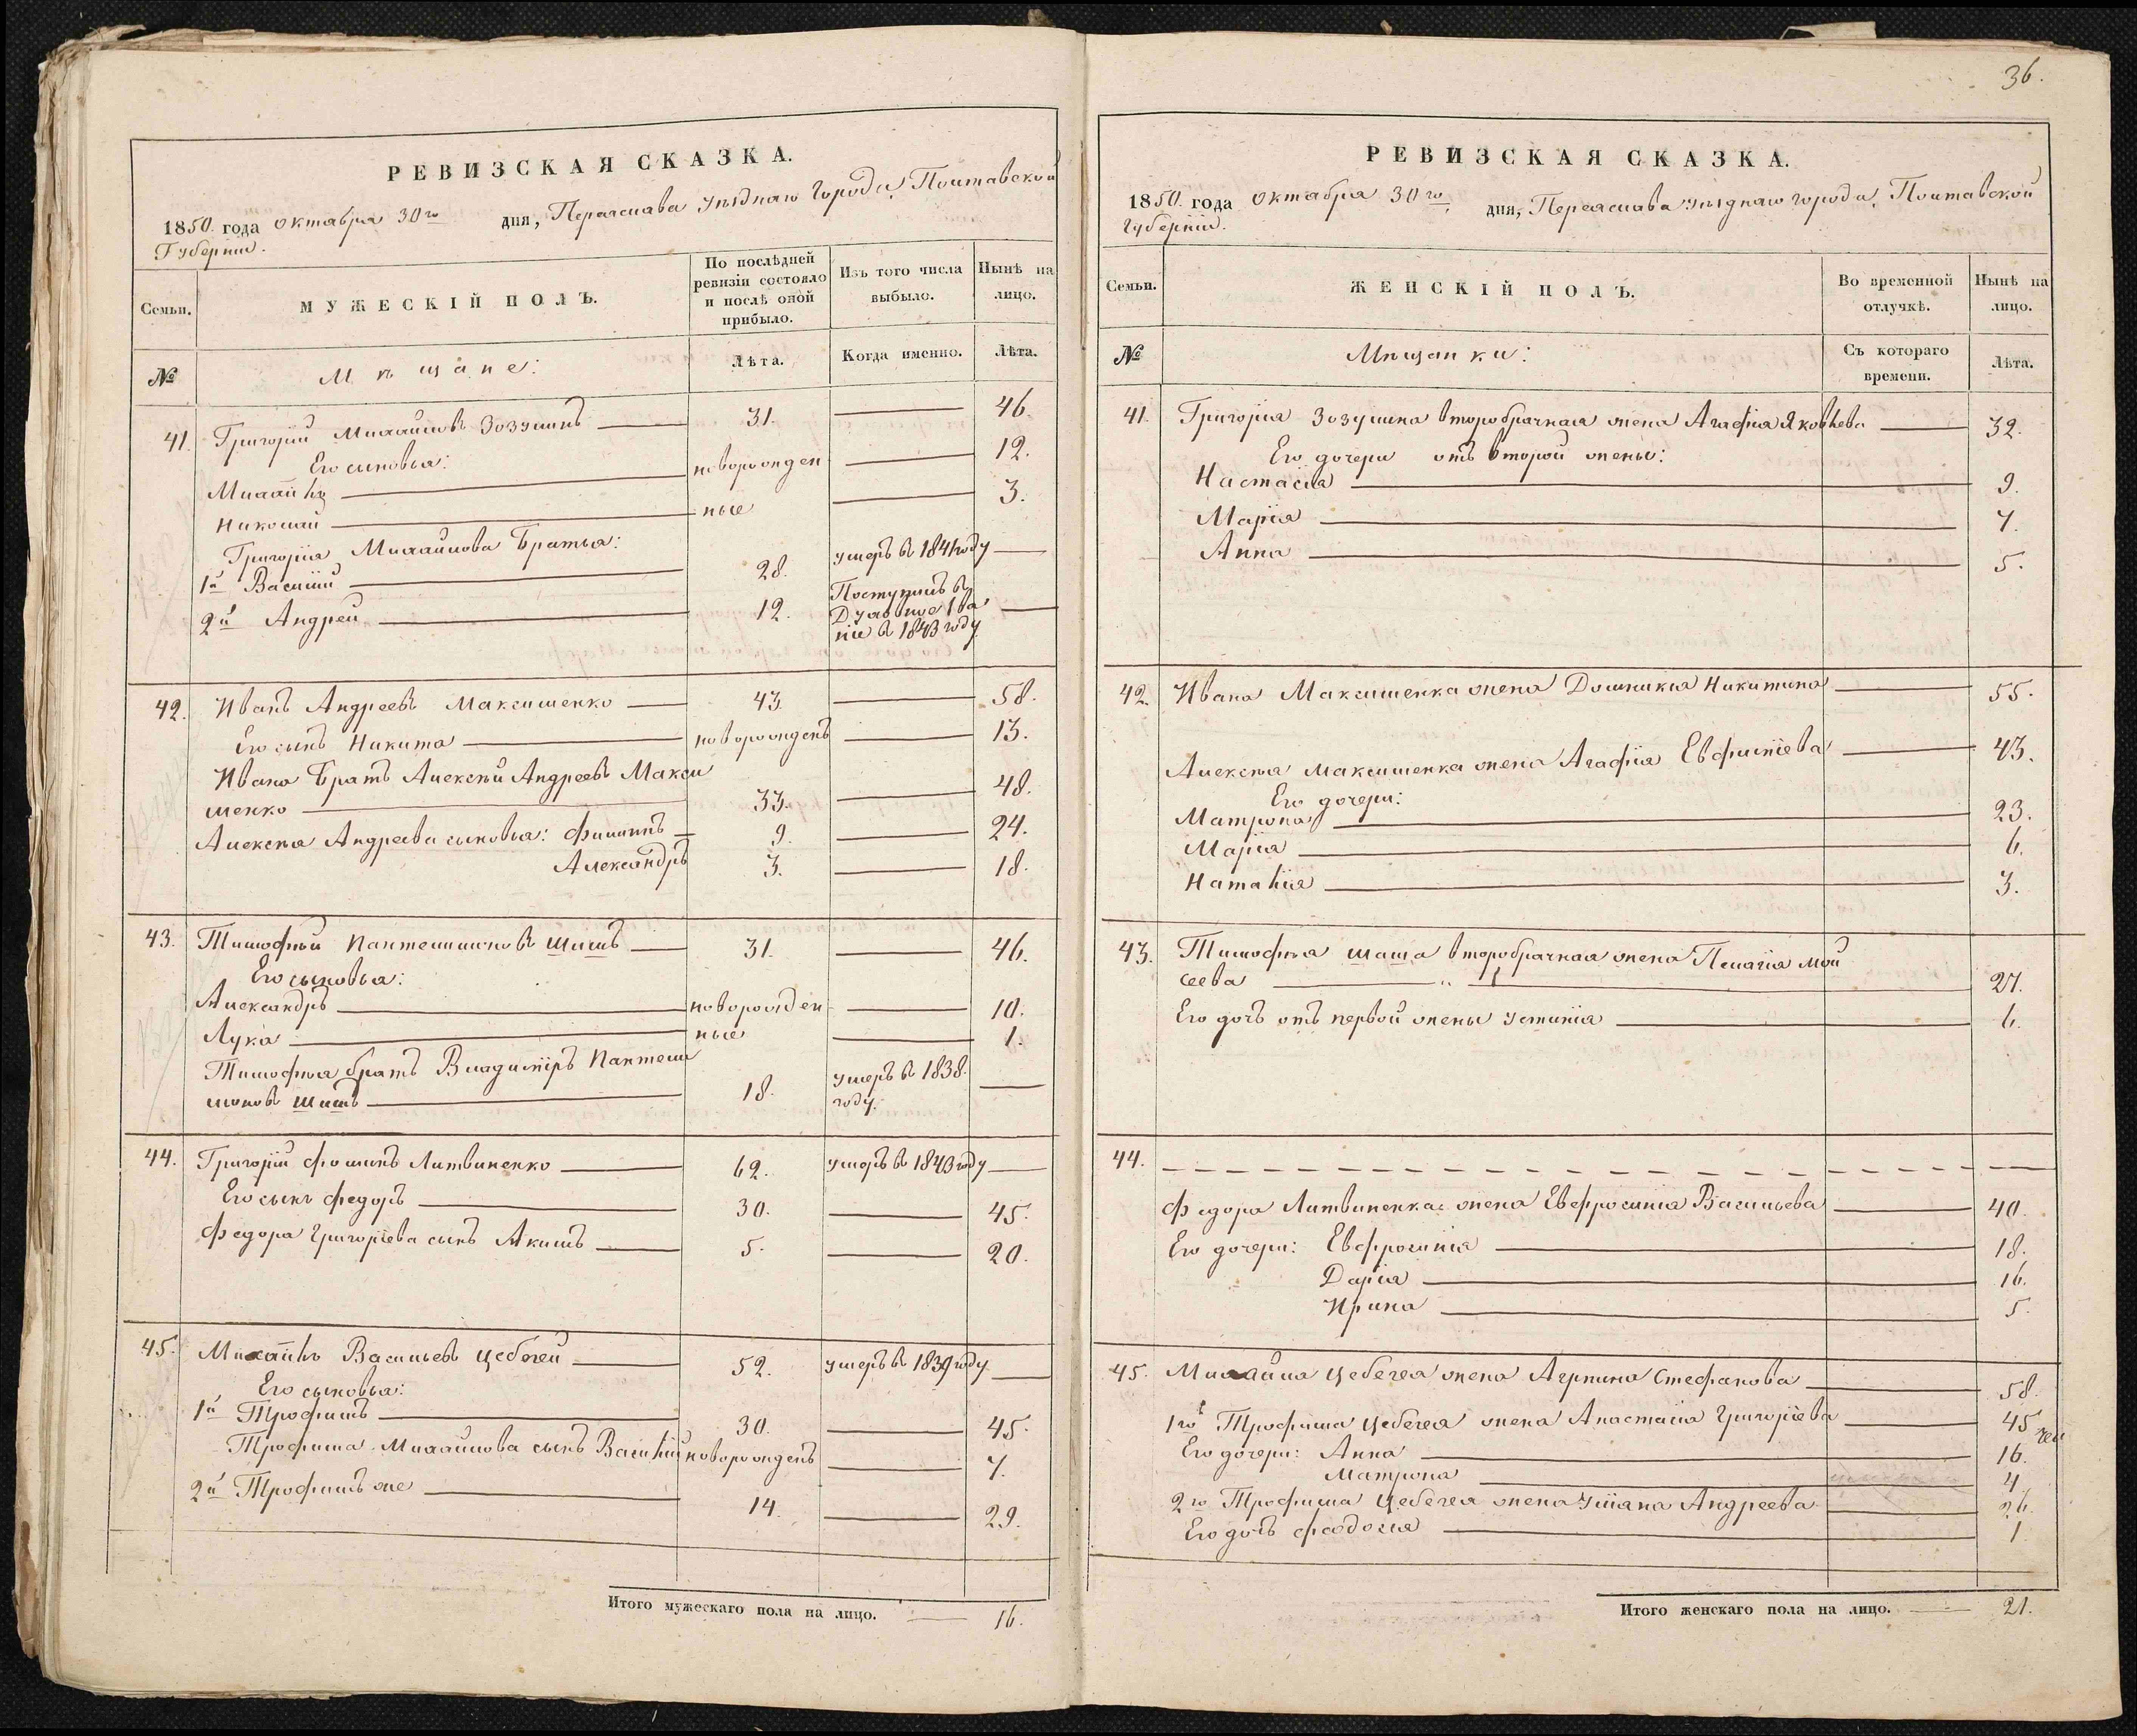 РЕВИЗСКАЯ СКАЗКА.
1850. года октября 30го дня, Переяслава уѣзднаго города, Полтавской
Губерніи.
Семьи.
МУЖЕСКІЙ ПОЛЪ.
По послѣдней ревизіи состояло и послѣ оной прибыло.
Изъ того числа выбыло.
Нынѣ на лицо.
№
Мѣщане:
Лѣта.
Когда именно.
Лѣта.
41. Григорій Михайловъ Зозулинъ 31. 46.
Его сыновья:
Михайлъ новорожден 12.
Николай ные 3.
Григорія Михайлова братья:
1й Василій 28. умеръ въ 1841 году
2й Андрей 12. Поступилъ въ
Духовное зва
ніе въ 1843 году
42. Иванъ Андреевъ Максименко 43. 58.
Его сынъ Никита новорожденъ 13.
Ивана братъ Алексѣй Андреевъ Макси
менко 33. 48.
Алексѣя Андреева сыновья: Филиппъ 9. 24.
Александръ 3. 18.
43. Тимофѣй Пантелимоновъ Шишъ 31. 46.
Его сыновья:
Александръ новорожден 10.
Лука ные 1.
Тимофѣя братъ Владиміръ Пантели
моновъ Шишъ 18. умеръ въ 1838.
году.
44. Григорій Фоминъ Литвиненко 62. умеръ въ 1843 году
Его сынъ Федоръ 30. 45.
Федора Григоріева сынъ Акимъ 5. 20.
45. Михайлъ Васильевъ Цебегей 52. умеръ въ 1839 году
Его сыновья:
1й Трофимъ 30. 45.
Трофима Михайлова сынъ Василій новорожденъ 7.
2й Трофимъ же 14. 29.
Итого мужескаго пола на лицо. 16.
36.
РЕВИЗСКАЯ СКАЗКА.
1850. года октября 30го, дня, Переяслава уѣзднаго города, Полтавской
Губерніи.
Семьи.
ЖЕНСКІЙ ПОЛЪ.
Во временной отлучкѣ.
Нынѣ на лицо.
№
Мѣщанки:
Съ котораго времени.
Лѣта.
41. Григорія Зозулина второбрачная жена Агафія Яковлева 32.
Его дочери отъ второй жены:
Настасія 9.
Марія 7.
Анна 5.
42. Ивана Максименка жена Домникія Никитина 55.
Алексѣя Максименка жена Агафія Евфиміева 43.
Его дочери:
Матрона 23.
Марія 6.
Наталія 3.
43. Тимофѣя Шиша второбрачная жена Пелагія Мой
сеева 27.
Его дочь отъ первой жены Устинія 6.
44.
Федора Литвиненка жена Евфросинія Васильева 40.
Его дочери: Евфросинія 18.
Дарія 16.
Ирина 5.
45. Михайла Цебегея жена Агрпина Стефанова 58.
1го Трофима Цебегея жена Анастасія Григоріева 45
Его дочери: Анна 16.
Матрона 4
2го Трофима Цебегея жена Уліана Андреева 26.
Его дочь Феодосія 1
Итого женскаго пола на лицо. 21.